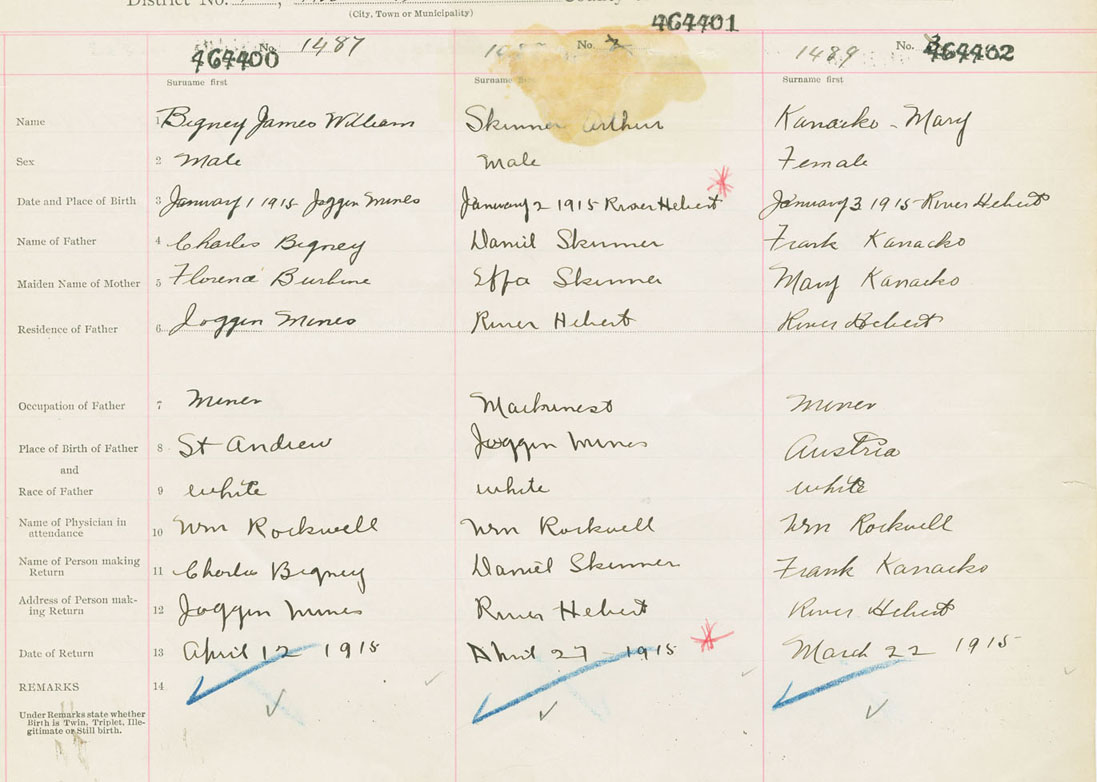 District No.
(City, Town or Municipality)
464400 No. 1487 No. 2 464401 1489 No. 464402
Surname first Surname Surname first
Name 1 Bigney James William Skinner Arthur Kanacko - Mary
Sex 2 Male Male Female
Date and Place of Birth 3 January 1 1915 Joggin Mines January 2 1915 River Hebert January 3 1915 - River Hebert
Name of Father 4 Charles Bigney Daniel Skinner Frank Kanacko
Maiden Name of Mother 5 Florence Burbine Effa Skinner Mary Kanacko
Residence of Father 6 Joggin Mines River Hebert River Hebert
Occupation of Father 7 Miner Machinest Miner
Place of Birth of Father 8 St Andrew Joggin Mines Austria
and
Race of Father 9 white white white
Name of Physician in
attendance 10 Wm Rockwell Wm Rockwell Wm Rockwell
Name of Person making
Return 11 Charlie Bigney Daniel Skinner Frank Kanacko
Address of Person mak-
ing Return 12 Joggin Mines River Hebert River Hebert
Date of Return 13 April 12 1915 April 27 - 1915 March 22 1915
REMARKS 14
Under Remarks state whether
Birth is Twin, Triplet, Ille-
gitimate or Still birth.